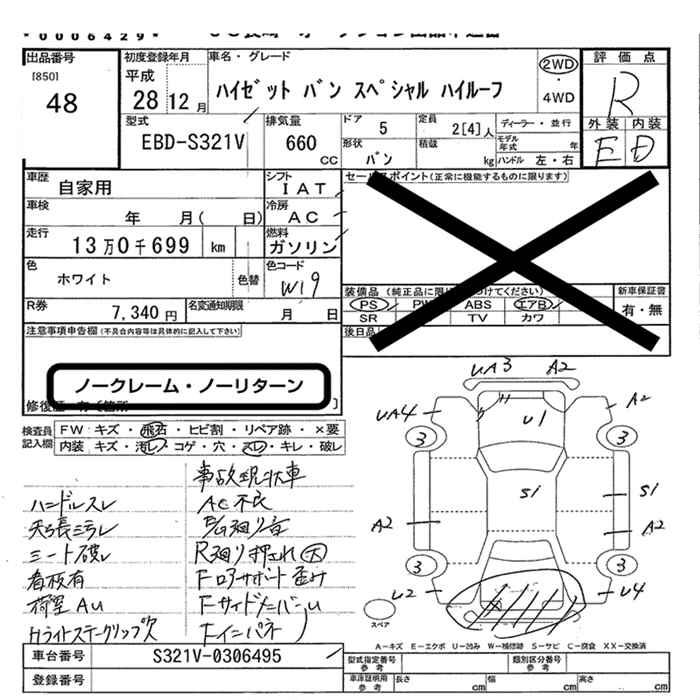 *0006429*
出品番号
[850]
48
初度登録年月
平成
28 12 月
車名・グレード
ハイゼット バン スペシャル ハイルーフ
2WD
・
4WD
評価点
R
外装 内装
E D
型式
EBD-S321V
排気量
660
CC
ドア
5
形状
バン
定員
2[4]人
積載
kg
ディーラー・並行
モデル年式 年
ハンドル 左・右
車歴
自家用
シフト
IAT
セールスポイント(正常に機能するものに限ります)
車検
年 月( 日)
冷房
AC
走行
13万0千699 km
燃料
ガソリン
色
ホワイト
色替
色コード
W19
装備品(純正品に限り けてください)
PS PW ABS エアB
SR TV カワ
新車保証書
有・無
R券
7,340 円
名変通知期限
月 日
後日品
注意事項申告欄(不具合内容等は具体的に記入して下さい)
ノークレーム・ノーリターン
修復歴 有[箇所 ]
検査員記入欄
FW キズ・飛石・ヒビ割・リペア跡・×要
内装 キズ・汚レ・コゲ・穴・スレ・キレ・破レ
事故現状車
ハンドルスレ AC不良
天張ミラレ
シート破レ R廻り押され 大
看板有 Fロアサポート歪み
荷室AU FサイドメンバーU
Hライトステークリップ欠 Fインパネ
UA3 A2
UA4 U1 A2
3 3
S1 S1
A2 A2
3 3
U2 U4
スペア
A-キズ E-エクボ U-凹み W-補修跡 S-サビ C-腐食 XX-交換済
車台番号
S321V-0306495
型式指定番号
参考
類別区分番号
参考
登録番号
車庫証明用
参考
長さ cm
幅 cm
高さ cm